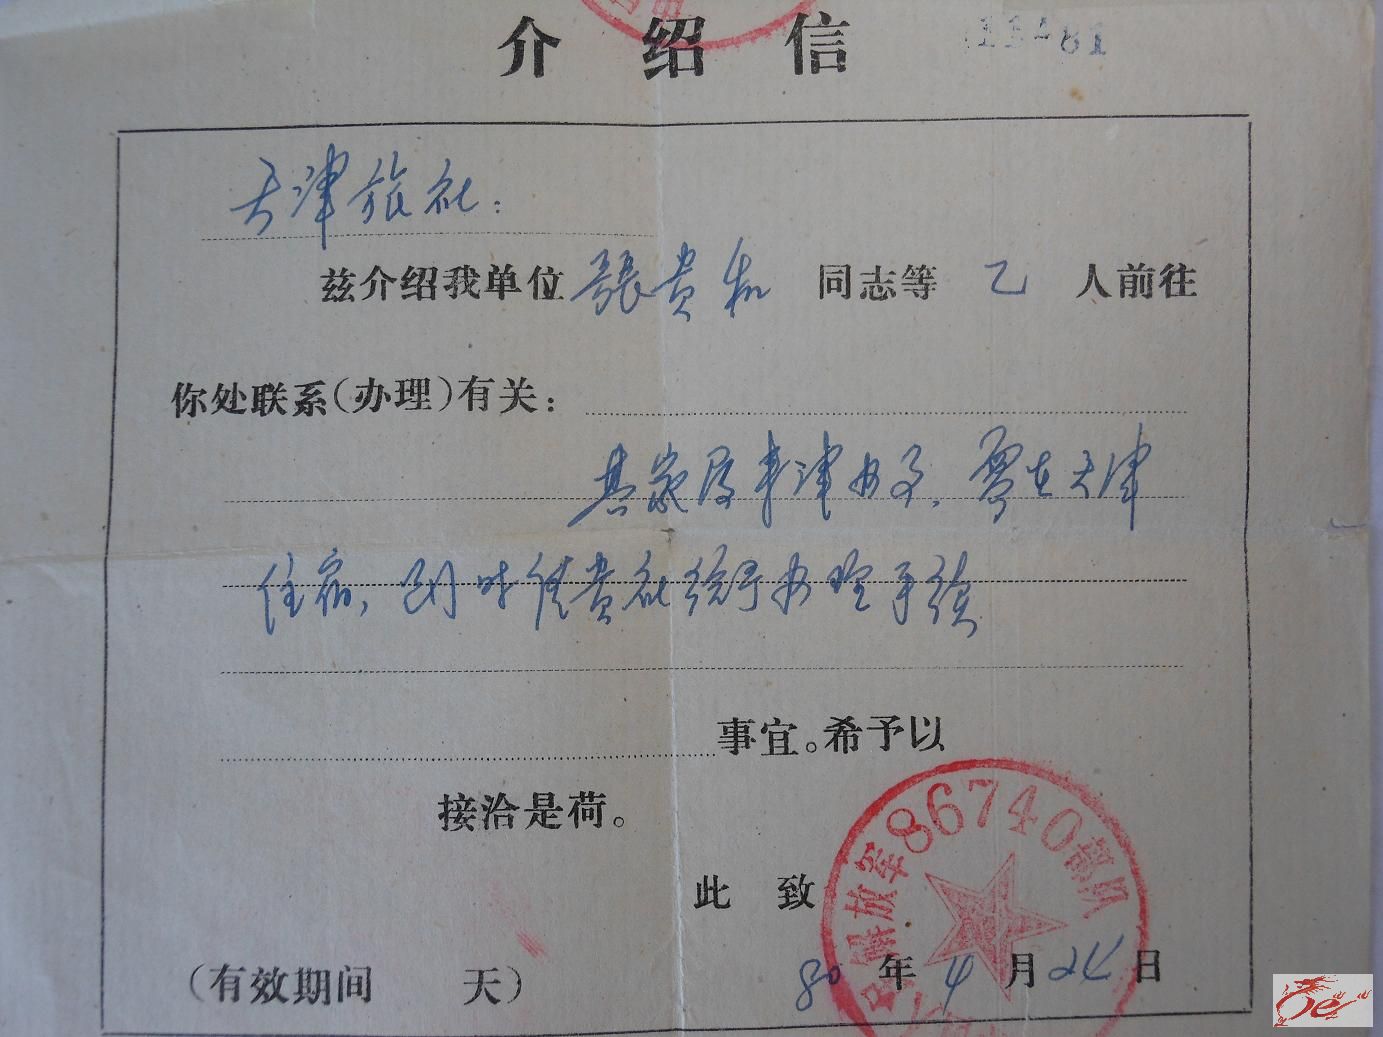 介绍信
天津旅社：
兹介绍我单位 張贵和 同志等 乙 人前往
你处联系(办理)有关：
其家属来津女子，需在天津
住宿，到时 贵社给予办理手续
事宜。希予以
接洽是荷。
此 致
放军86740部队
(有效期间 天)
80年4月24日